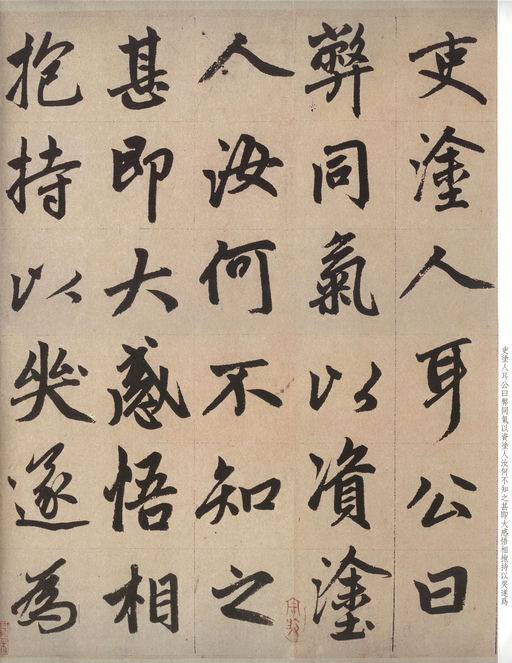 吏塗人耳公曰
弊同氣以資塗
人汝何不知之
甚即大感悟相
抱持以哭遂為
吏塗人耳公曰弊同氣以資塗人汝何不知之甚即大感悟相抱持以哭遂爲